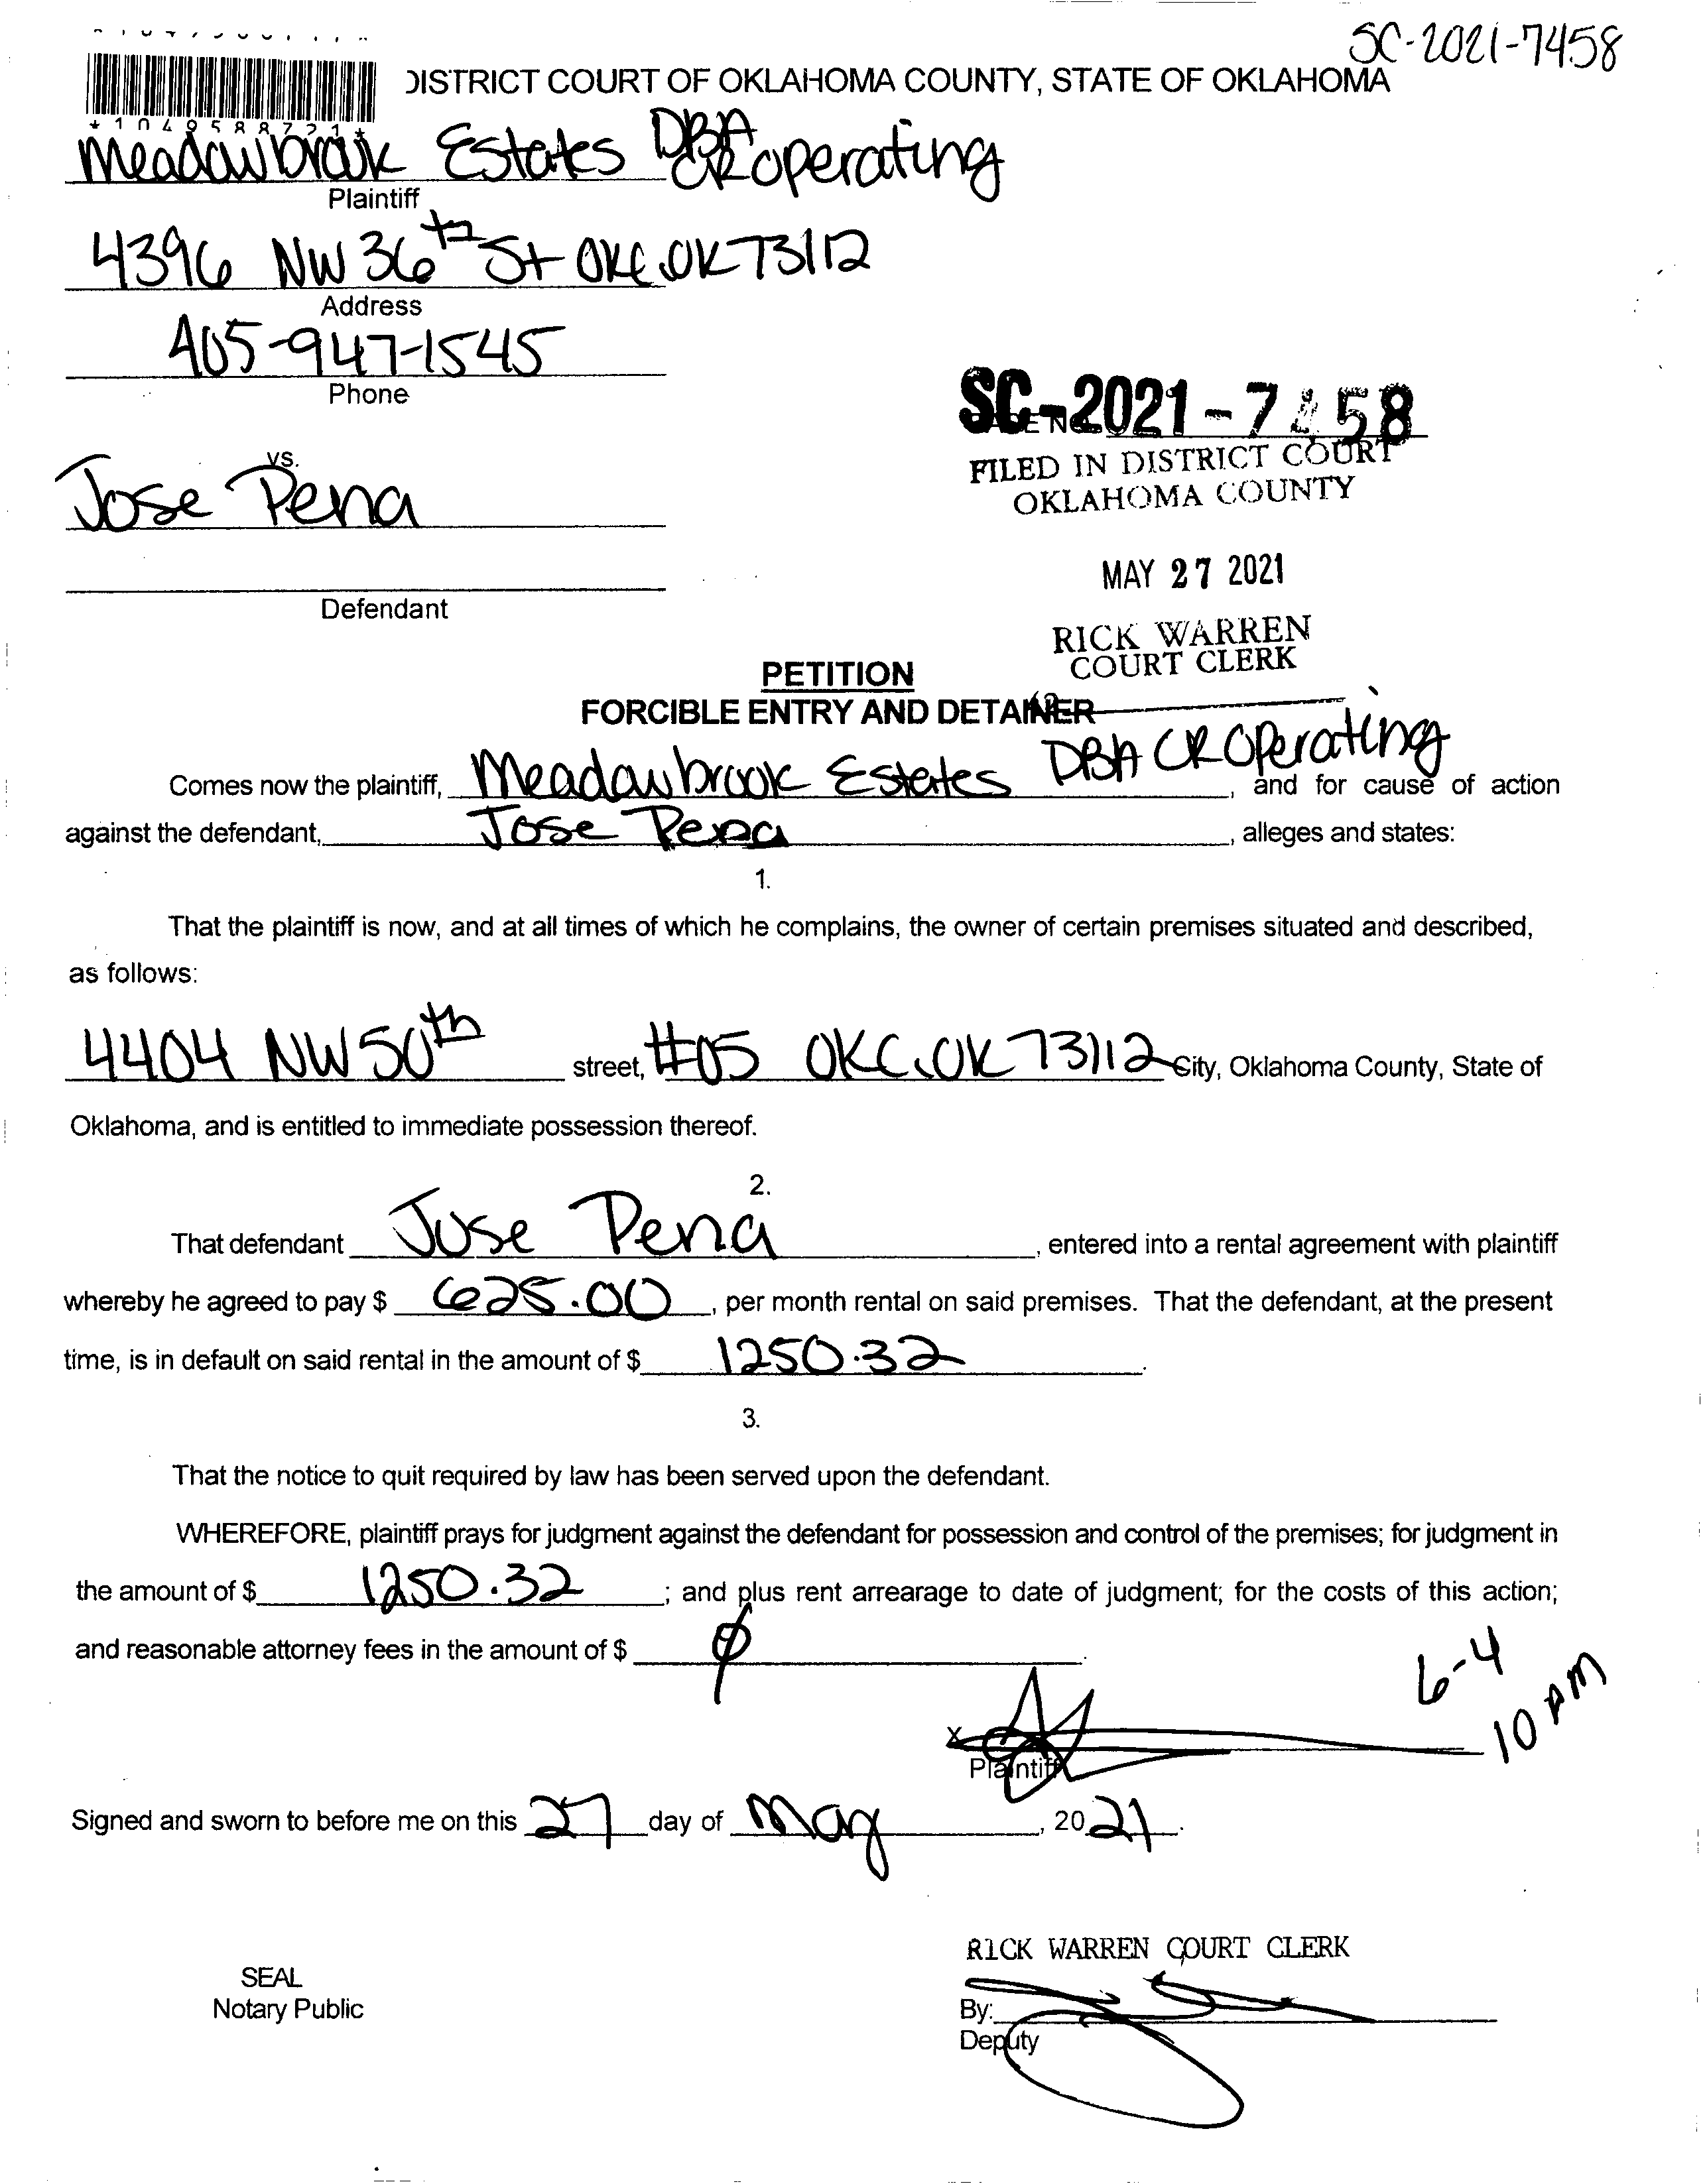 SC-2021-7458
DISTRICT COURT OF OKLAHOMA COUNTY, STATE OF OKLAHOMA
*1049588721*
Meadowbrook Estates DBA CR operating
Plaintiff
4396 NW 36th St OKC OK 73112
Address
405-947-1545
Phone
SC-2021-7458
FILED IN DISTRICT COURT
OKLAHOMA COUNTY
vs.
Jose Pena
MAY 27 2021
Defendant
RICK WARREN
COURT CLERK
PETITION
FORCIBLE ENTRY AND DETAINER
Comes now the plaintiff, Meadowbrook Estates DBA CR Operating, and for cause of action
against the defendant, Jose Pena, alleges and states:
1.
That the plaintiff is now, and at all times of which he complains, the owner of certain premises situated and described,
as follows:
4404 NW 50th street, #05 OKC, OK 73112 City, Oklahoma County, State of
Oklahoma, and is entitled to immediate possession thereof.
2.
That defendant Jose Pena, entered into a rental agreement with plaintiff
whereby he agreed to pay $ 625.00, per month rental on said premises. That the defendant, at the present
time, is in default on said rental in the amount of $ 1250.32.
3.
That the notice to quit required by law has been served upon the defendant.
WHEREFORE, plaintiff prays for judgment against the defendant for possession and control of the premises; for judgment in
the amount of $ 1250.32; and plus rent arrearage to date of judgment; for the costs of this action;
and reasonable attorney fees in the amount of $ ϕ.
6-4
10 AM
x
Plaintiff
Signed and sworn to before me on this 27 day of May, 2021.
RICK WARREN COURT CLERK
SEAL
Notary Public
By:
Deputy